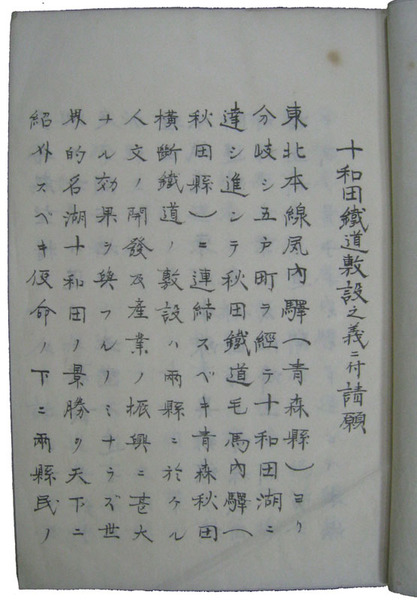 十和田鐵道敷設之義ニ付請願
東北本線尻內驛(青森縣)ヨリ
分岐シ五戸町ヲ經テ十和田湖ニ
達シ進ンテ秋田鐵道毛馬內驛(
秋田縣)ニ連結スベキ青森秋田
橫斷鐵道ノ敷設ハ兩縣ニ於ケル
人文ノ開發及產業ノ振興ニ甚大
ナル効果ヲ與フルノミナラズ世
界的名湖十和田ノ景勝ヲ天下ニ
紹介スベキ使命ノ下ニ兩縣民ノ